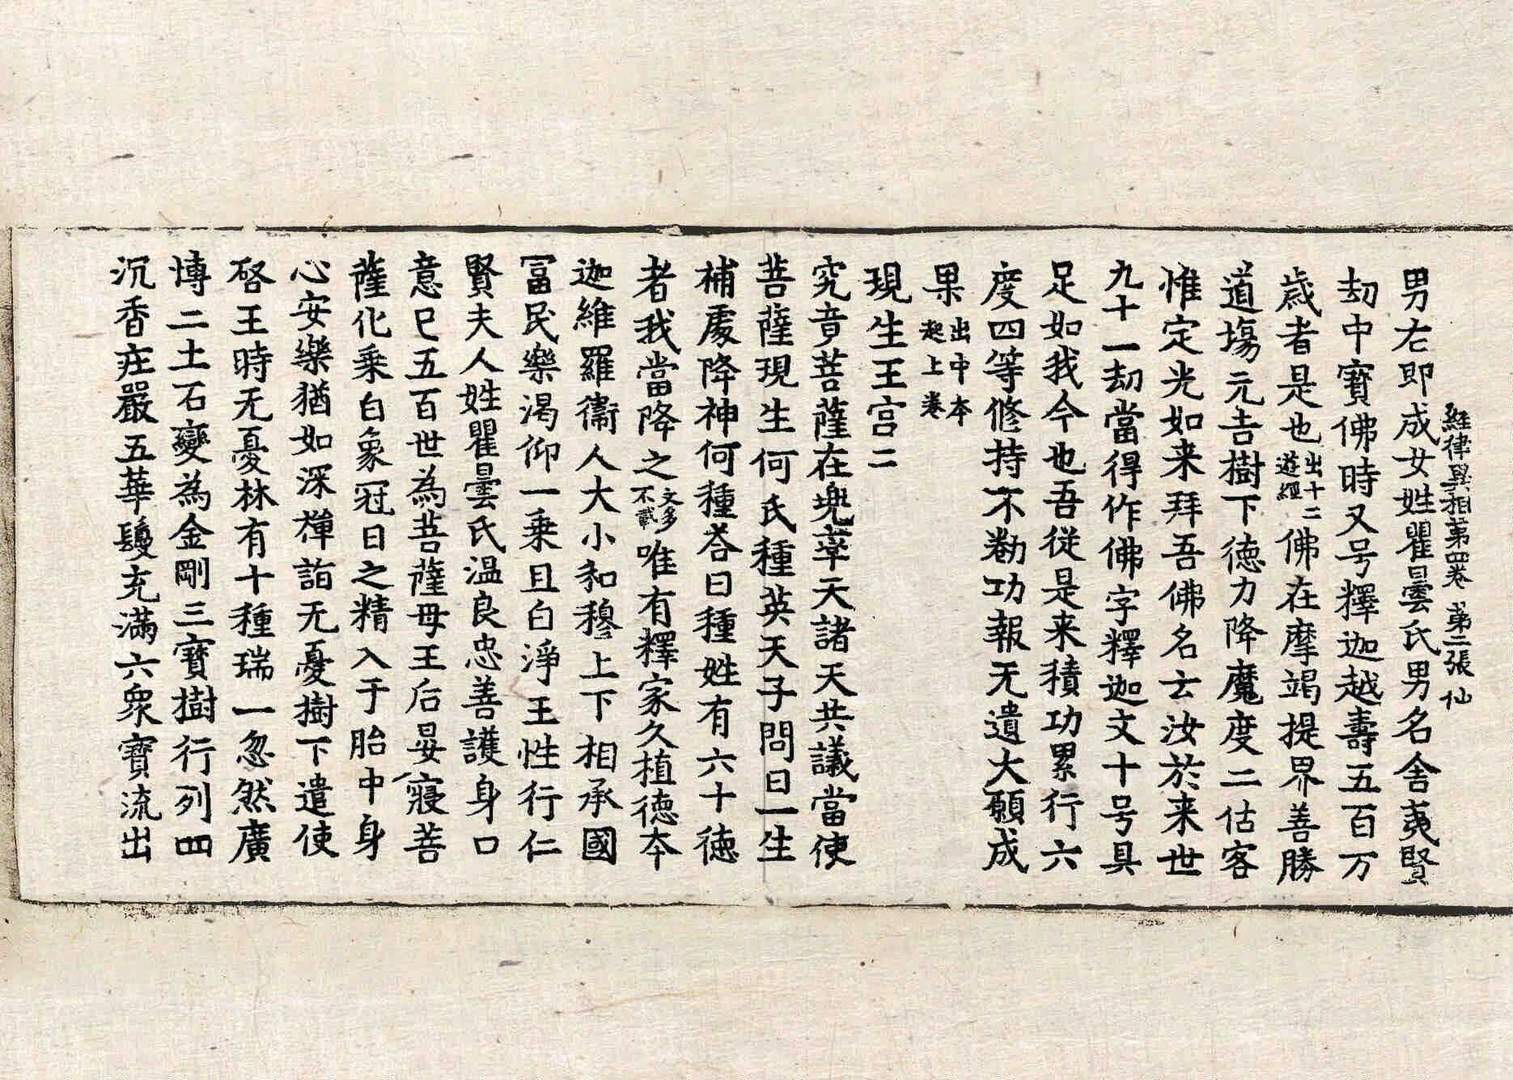 經律異相第四卷 第二張 仙
男右即成女姓瞿曇氏男名舍夷賢
劫中寳佛時又号釋迦越壽五百万
歲者是也出十二遊經佛在摩竭提界善勝
道場元吉樹下德力降魔度二估客
惟定光如来拜吾佛名云汝於来世
九十一劫當得作佛字釋迦文十号具
足如我今也吾從是来積功累行六
度四等修持不勌功報无遺大願成
果出中本起上卷
現生王宫二
究竟菩薩在兜率天諸天共議當使
菩薩現生何氏種英天子問曰一生
補處降神何種荅曰種姓有六十德
者我當降之文多不載唯有釋家久植德夲
迦維羅衞人大小和穆上下相承國
冨民樂渴仰一乗且白淨王性行仁
賢夫人姓瞿曇氏温良忠善護身口
意已五百世為菩薩母王后晏寢菩
薩化乗白象冠日之精入于胎中身
心安樂猶如深禪詣无憂樹下遣使
啓王時无憂林有十種瑞一忽然廣
博二土石變為金剛三寳樹行列四
沉香庄嚴五華鬘充滿六衆寳流出